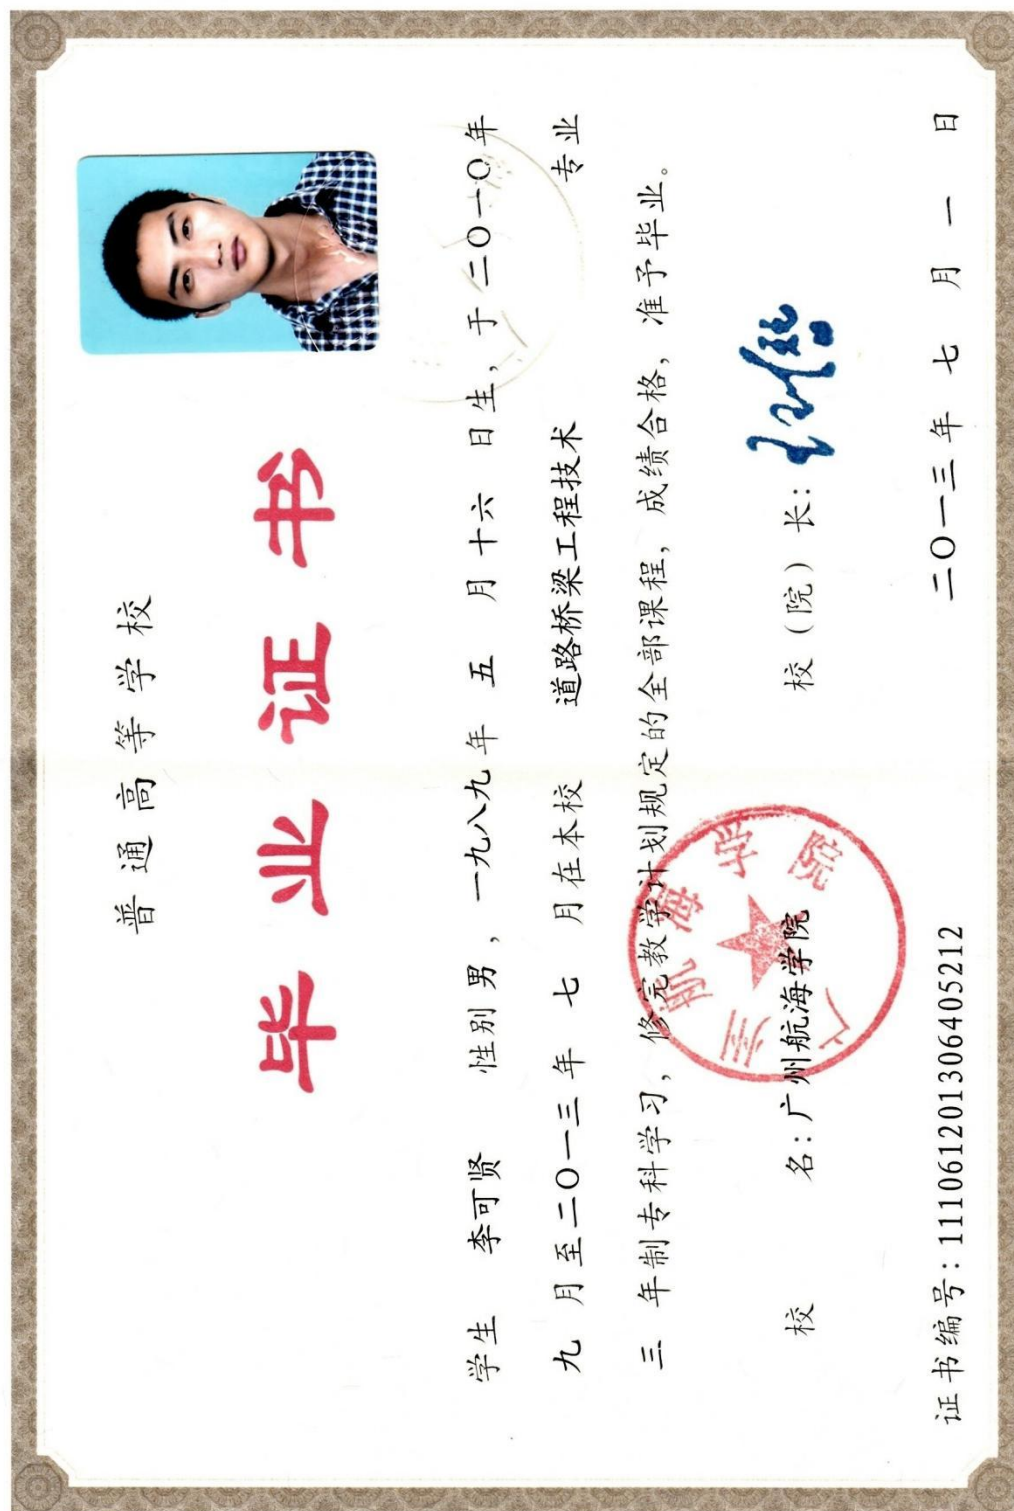 普通高等学校
毕业证书
学生 李可贤 性别男，一九八九年 五 月十六 日生，于二〇一〇年
九 月至二〇一三年 七 月在本校 道路桥梁工程技术 专业
三 年制专科学习，修完教学计划规定的全部课程，成绩合格，准予毕业。
校 名：广州航海学院 校（院）长：
广州航海学院
二〇一三年 七 月 一 日
证书编号：111061201306405212